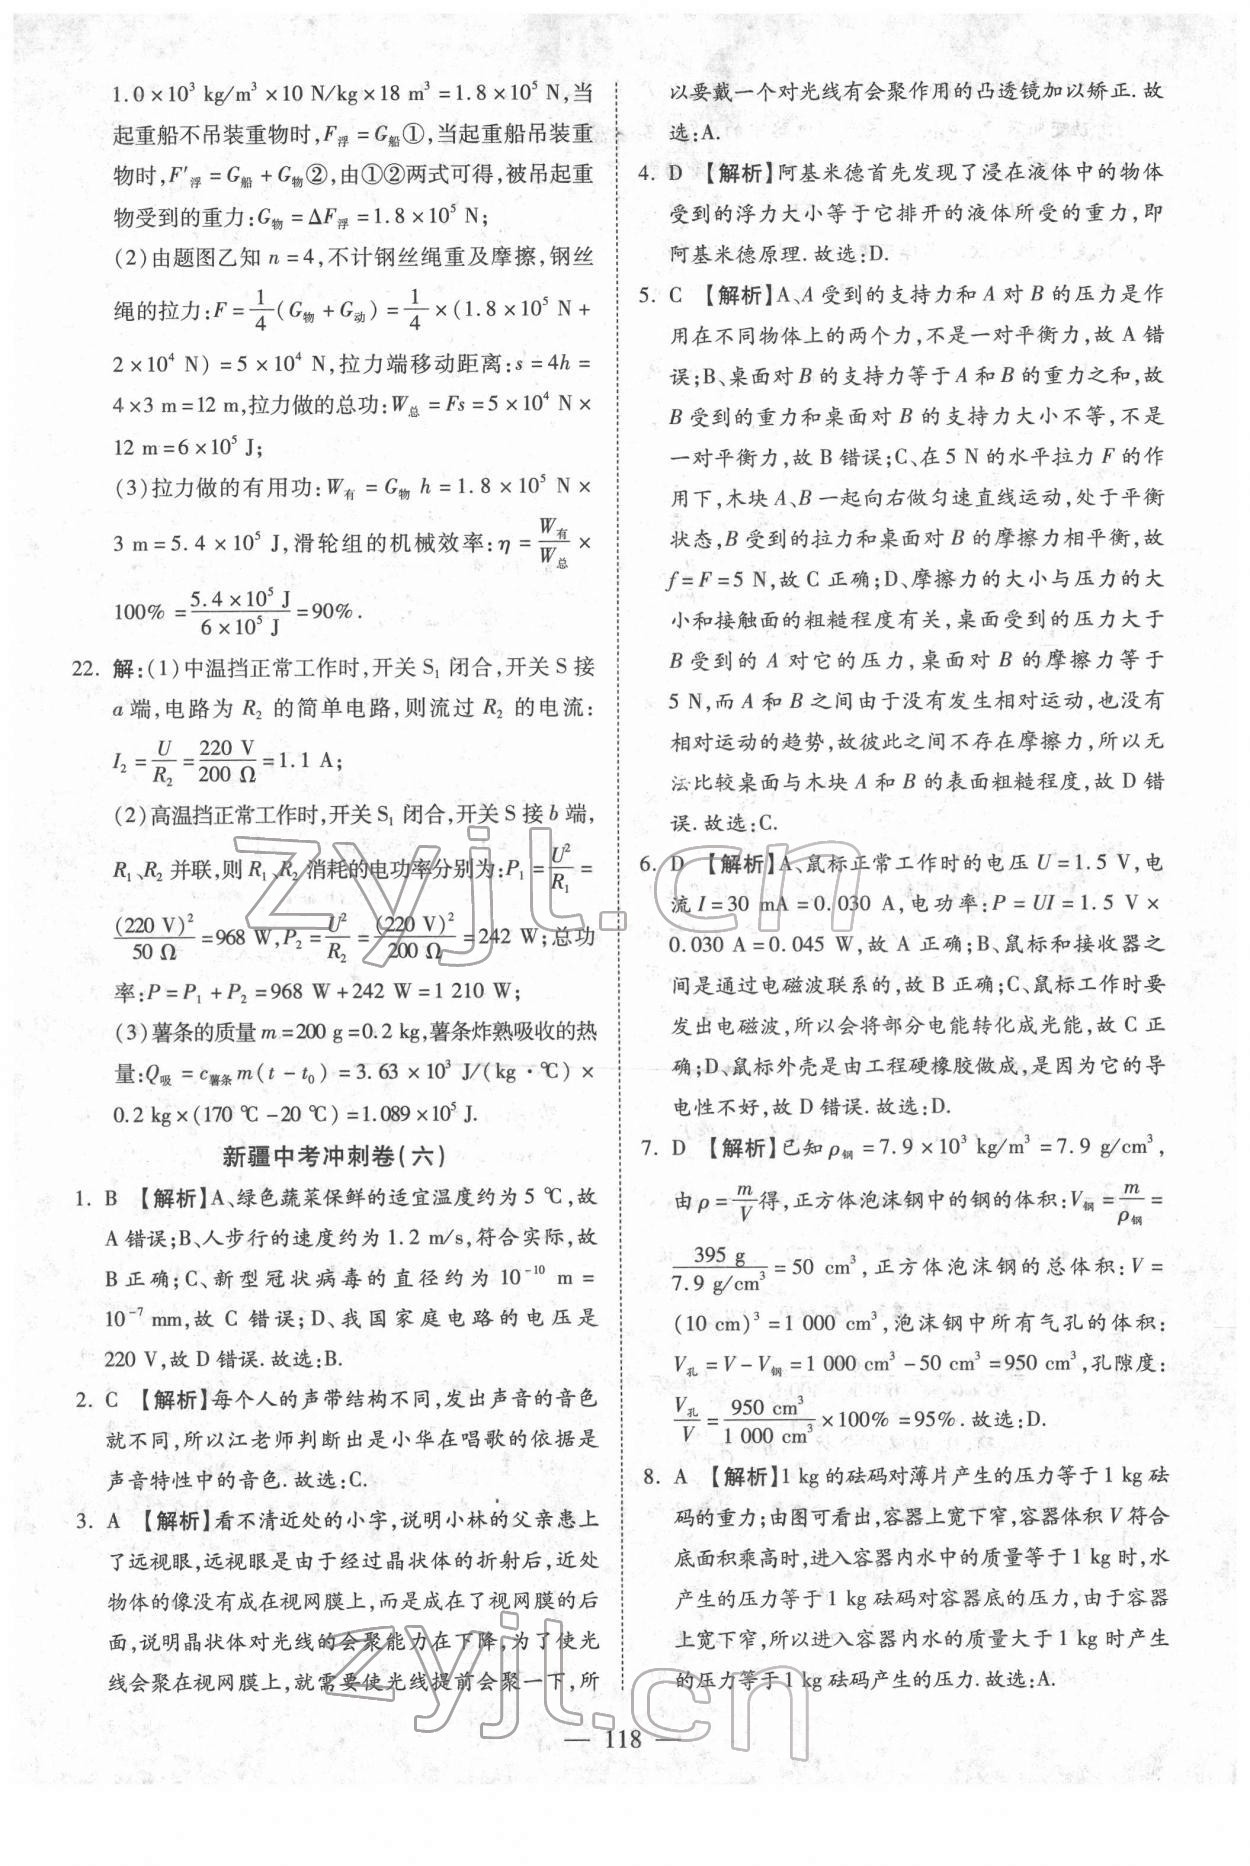 1.0×10³ kg/m³×10 N/kg×18 m³=1.8×10⁵ N,当
起重船不吊装重物时,F浮=G船①,当起重船吊装重
物时,F'浮=G船+G物②,由①②两式可得,被吊起重
物受到的重力:G物=ΔF浮=1.8×10⁵ N;
(2)由题图乙知 n=4,不计钢丝绳重及摩擦,钢丝
绳的拉力:F=1/4(G物+G动)=1/4×(1.8×10⁵ N+
2×10⁴ N)=5×10⁴ N,拉力端移动距离:s=4h=
4×3 m=12 m,拉力做的总功:W总=Fs=5×10⁴ N×
12 m=6×10⁵ J;
(3)拉力做的有用功:W有=G物 h=1.8×10⁵ N×
3 m=5.4×10⁵ J,滑轮组的机械效率:η=W有/W总×
100%=5.4×10⁵ J/6×10⁵ J=90%.
22. 解:(1)中温挡正常工作时,开关 S₁ 闭合,开关 S 接
a 端,电路为 R₂ 的简单电路,则流过 R₂ 的电流:
I₂=U/R₂=220 V/200 Ω=1.1 A;
(2)高温挡正常工作时,开关 S₁ 闭合,开关 S 接 b 端,
R₁、R₂ 并联,则 R₁、R₂ 消耗的电功率分别为:P₁=U²/R₁=
(220 V)²/50 Ω=968 W,P₂=U²/R₂=(220 V)²/200 Ω=242 W;总功
率:P=P₁+P₂=968 W+242 W=1 210 W;
(3)薯条的质量 m=200 g=0.2 kg,薯条炸熟吸收的热
量:Q吸=c薯条m(t-t₀)=3.63×10³ J/(kg·℃)×
0.2 kg×(170 ℃-20 ℃)=1.089×10⁵ J.
新疆中考冲刺卷(六)
1. B 【解析】A、绿色蔬菜保鲜的适宜温度约为 5 ℃,故
A 错误;B、人步行的速度约为 1.2 m/s,符合实际,故
B 正确;C、新型冠状病毒的直径约为 10⁻¹⁰ m=
10⁻⁷ mm,故 C 错误;D、我国家庭电路的电压是
220 V,故 D 错误.故选:B.
2. C 【解析】每个人的声带结构不同,发出声音的音色
就不同,所以江老师判断出是小华在唱歌的依据是
声音特性中的音色.故选:C.
3. A 【解析】看不清近处的小字,说明小林的父亲患上
了远视眼,远视眼是由于经过晶状体的折射后,近处
物体的像没有成在视网膜上,而是成在了视网膜的后
面,说明晶状体对光线的会聚能力在下降,为了使光
线会聚在视网膜上,就需要使光线提前会聚一下,所
以要戴一个对光线有会聚作用的凸透镜加以矫正.故
选:A.
4. D 【解析】阿基米德首先发现了浸在液体中的物体
受到的浮力大小等于它排开的液体所受的重力,即
阿基米德原理.故选:D.
5. C 【解析】A、A 受到的支持力和 A 对 B 的压力是作
用在不同物体上的两个力,不是一对平衡力,故 A 错
误;B、桌面对 B 的支持力等于 A 和 B 的重力之和,故
B 受到的重力和桌面对 B 的支持力大小不等,不是
一对平衡力,故 B 错误;C、在 5 N 的水平拉力 F 的作
用下,木块 A、B 一起向右做匀速直线运动,处于平衡
状态,B 受到的拉力和桌面对 B 的摩擦力相平衡,故
f=F=5 N,故 C 正确;D、摩擦力的大小与压力的大
小和接触面的粗糙程度有关,桌面受到的压力大于
B 受到的 A 对它的压力,桌面对 B 的摩擦力等于
5 N,而 A 和 B 之间由于没有发生相对运动,也没有
相对运动的趋势,故彼此之间不存在摩擦力,所以无
法比较桌面与木块 A 和 B 的表面粗糙程度,故 D 错
误.故选:C.
6. D 【解析】A、鼠标正常工作时的电压 U=1.5 V,电
流 I=30 mA=0.030 A,电功率:P=UI=1.5 V×
0.030 A=0.045 W,故 A 正确;B、鼠标和接收器之
间是通过电磁波联系的,故 B 正确;C、鼠标工作时要
发出电磁波,所以会将部分电能转化成光能,故 C 正
确;D、鼠标外壳是由工程硬橡胶做成,是因为它的导
电性不好,故 D 错误.故选:D.
7. D 【解析】已知 ρ钢=7.9×10³ kg/m³=7.9 g/cm³,
由 ρ=m/V得,正方体泡沫钢中的钢的体积:V钢=m/ρ钢=
395 g/7.9 g/cm³=50 cm³,正方体泡沫钢的总体积:V=
(10 cm)³=1 000 cm³,泡沫钢中所有气孔的体积:
V孔=V-V钢=1 000 cm³-50 cm³=950 cm³,孔隙度:
V孔/V=950 cm³/1 000 cm³×100%=95%.故选:D.
8. A 【解析】1 kg 的砝码对薄片产生的压力等于 1 kg 砝
码的重力;由图可看出,容器上宽下窄,容器体积 V 符合
底面积乘高时,进入容器内水中的质量等于 1 kg 时,水
产生的压力等于 1 kg 砝码对容器底的压力,由于容器
上宽下窄,所以进入容器内水的质量大于 1 kg 时产生
的压力等于 1 kg 砝码产生的压力.故选:A.
— 118 —
zyjl.cn
zyjl.cn